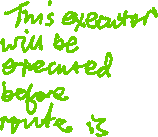 This executor
will be
executed
before
route is